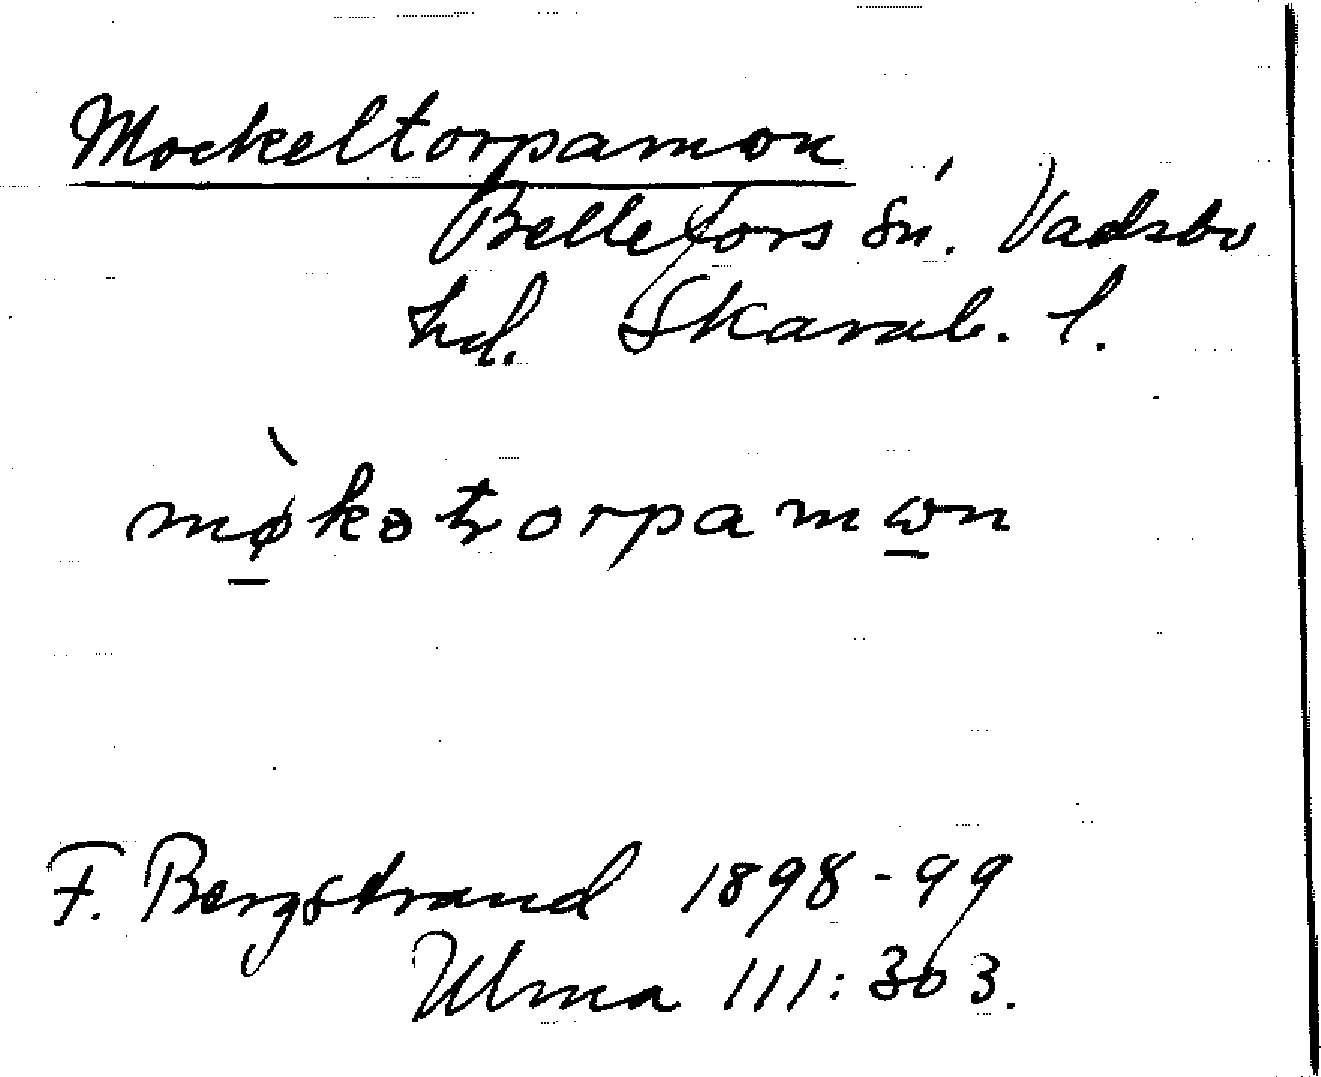 Mockeltorpamon
Bellefors sn. Vadsbo
hd. Skarab. l.
mø̱̀kətorpamω̱n
F. Bergstrand 1898-99
Ulma 111:303.